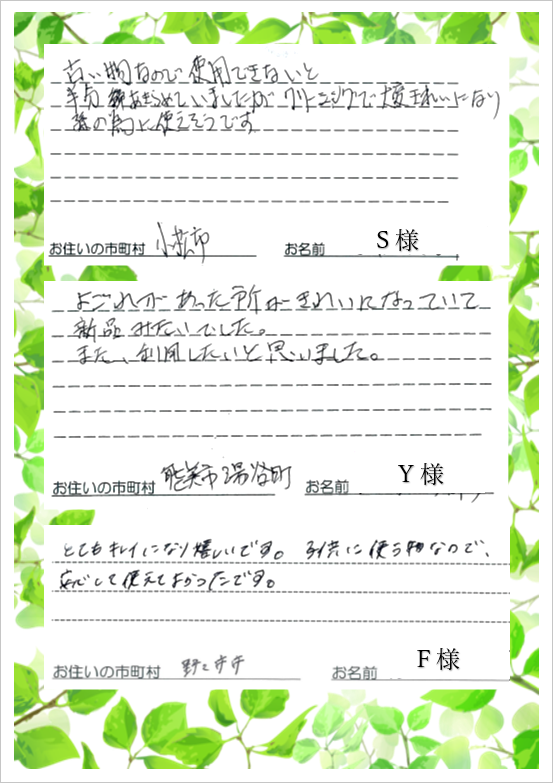 古い物なので使用できないと
半分諦あきらめていましたが クリーニングで大変きれいになり
孫の為に使えそうです
お住いの市町村 小松市 お名前 S 様
よごれがあった所がきれいになっていて
新品みたいでした。
また、利用したいと思いました。
お住いの市町村 能美市湯谷町 お名前 Y 様
とてもキレイになり嬉しいです。 子供に使う物なので、
安心して使えてよかったです。
お住いの市町村 野々市市 お名前 F 様